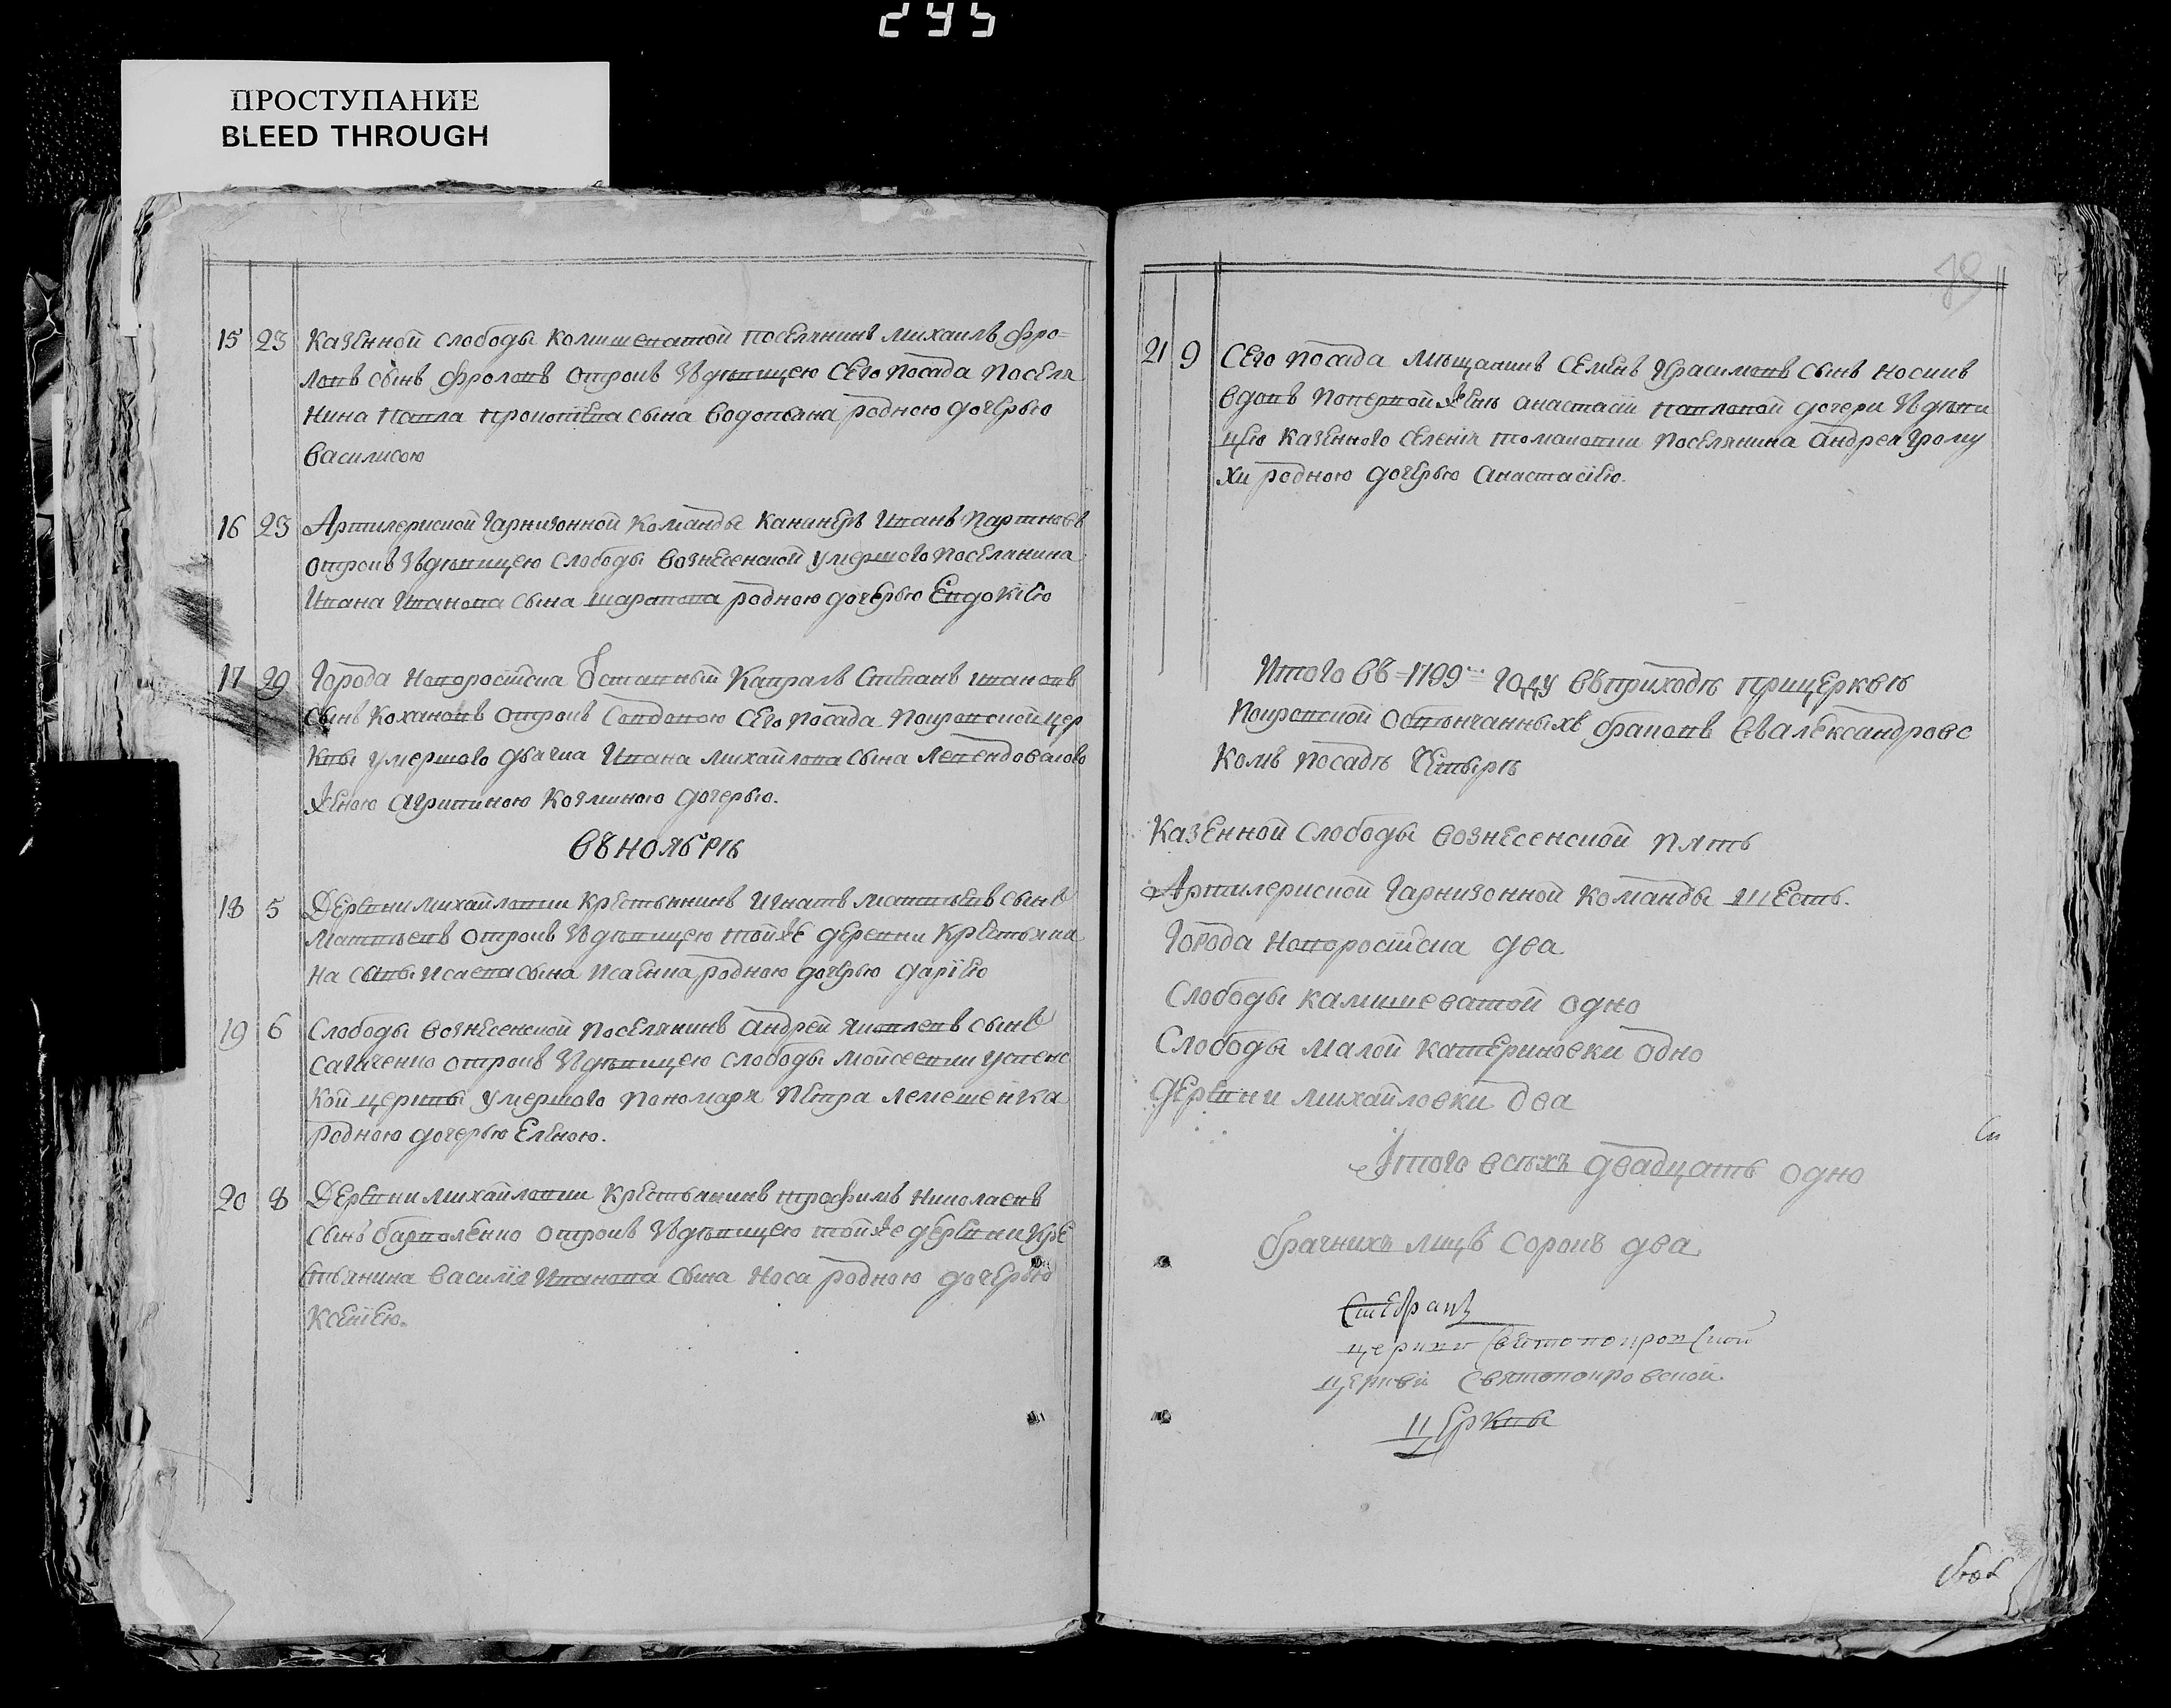 295
ПРОСТУПАНИЕ
BLEED THROUGH
15 23 Казенной слободы Комишеватой поселянинъ Михаилъ Фро=
ловъ сынъ Фроловъ отрокъ з дѣвицею сего посада поселя
нина Павла Прокопиева сына Водопяна родною дочерью
Василисою
16 23 Артилериской гарнизонной команды кананеръ Иванъ
отрокъ з дѣвицею слободы Вознесенской умершого поселянина
Ивана Иванова сына Шарапова родною дочерью Евдокіею
17 29 Города Новоросійска отставный капралъ Степанъ Ивановъ
сынъ Кохановъ отрокъ со вдовою сего посада Покровской цер
квы умершого дьячка Ивана Михайлова сына
женою Агрипиною Козминою дочерью.
въ ноябрѣ
18 5 Деревни Михайловки крестьянинъ Игнатъ Матвѣевъ сынъ
Матвѣевъ отрокъ з дѣвицею той же деревни крестьяни
на Савы Исаева сына Исаенка родною дочерью Даріею
19 6 Слободы Вознесенской поселянинъ Андрей Яковлевъ сынъ
Сагаченко отрокъ з дѣвицею слободы Мойсеевки Успенс
кой церквы умершого пономаря Петра Лемешенка
родною дочерью Еленою.
20 8 Деревни Михайловки крестьянинъ Трофимъ Николаевъ
сынъ отрокъ з дѣвицею той же деревни кре
стьянина Василія Иванова сына Носа родною дочерью
Ксѣніею.
21 9 Сего посада мѣщанинъ Семенъ Герасимовъ сынъ Носикъ
вдовъ по первой женѣ Анастасіи Павловой дочери з дѣви
цею казенного селенія Томаковки поселянина Андрея Грому
хи родною дочерью Анастасіею.
Итого въ 1799 году въ приходѣ при церквѣ
Покровской обвѣнчанныхъ браковъ въ Александровс
комъ посадѣ четырѣ
Казенной слободы Вознесенской пять
Артилериской гарнизонной команды шесть.
Города Новоросійска два
Слободы Камишеватой одно
Слободы Малой Катериновки одно
Деревни Михайловки два
Итого всѣхъ двадцать одно
брачнихъ лицъ сорокъ два
церкви Святопокровской
церкви Святопокровской
церквы